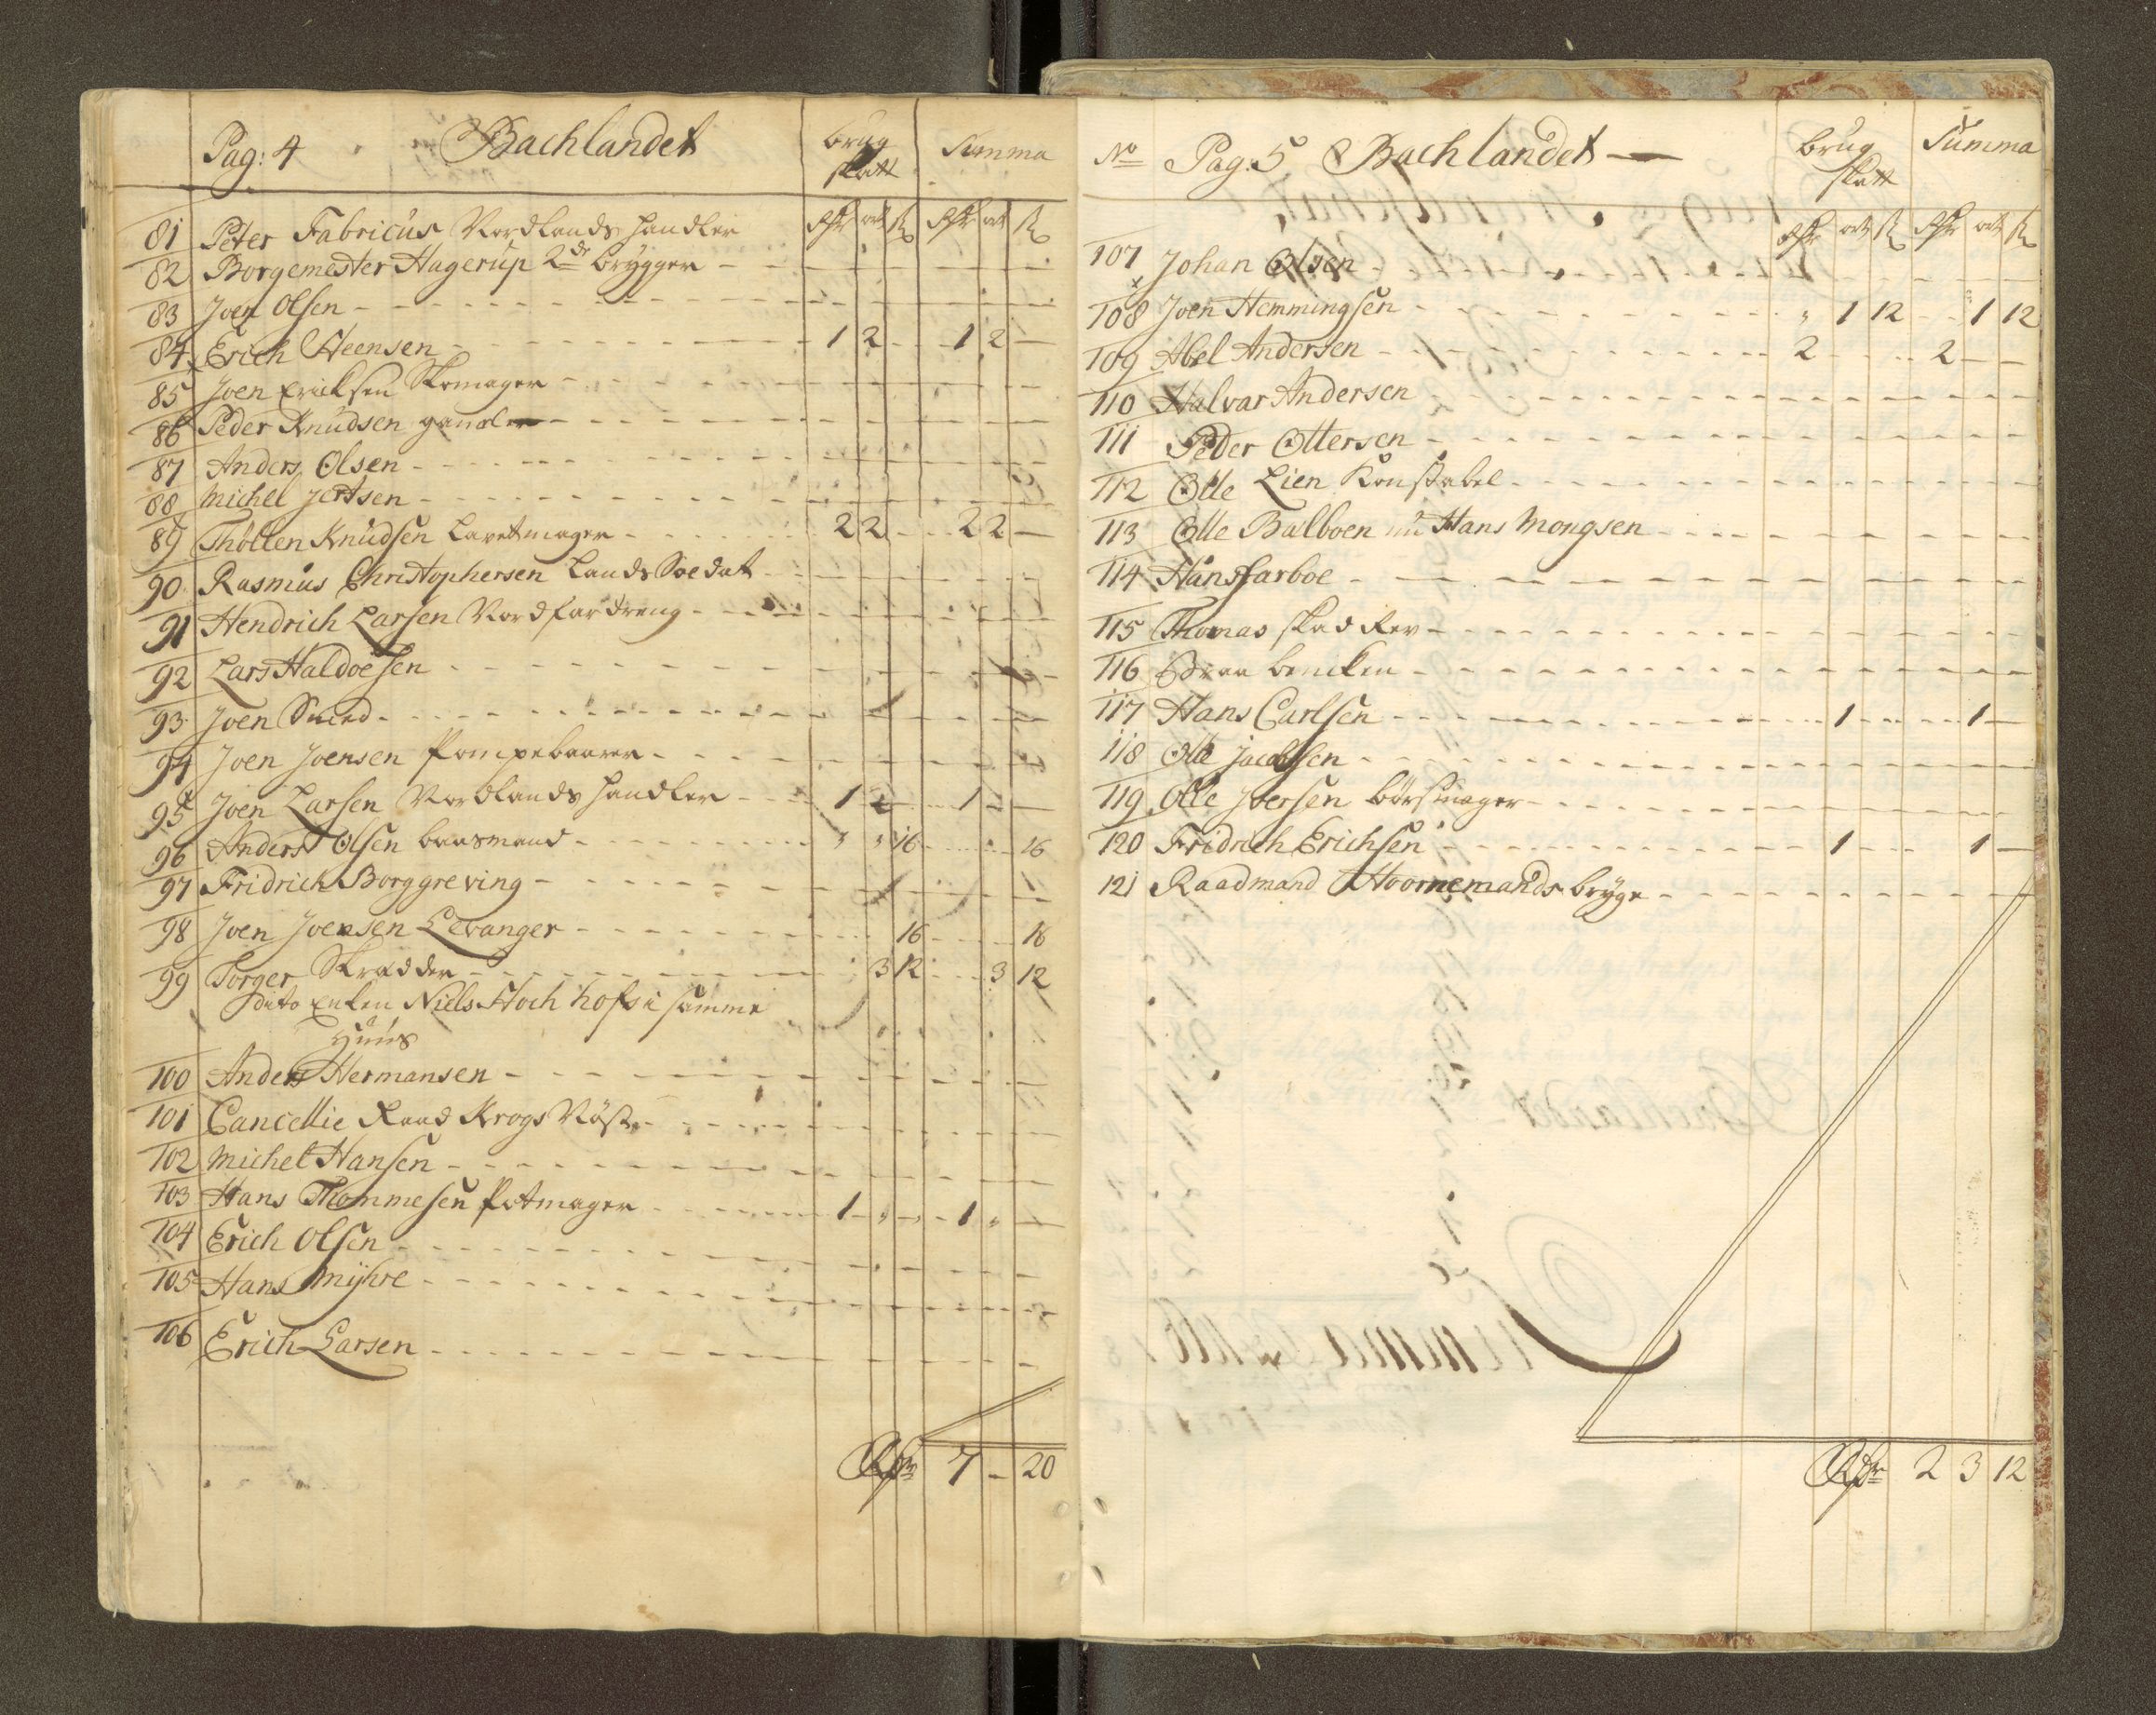 Pag: 4 Bachlandet brug skatt Summa
Rdr ort ß Rdr ort ß
81 Peter Fabricius Nordlands Handler
82 Borgemester Hagerup 2de brygger - - -
83 Joen Olsen - - -
84 Erich Steensen - - - 1 2 - 1 2 -
85 Joen Ericksen Skomager - - -
86 Peder Knudsen - - -
87 Anders Olsen - - -
88 Michel Jertsen - - -
89 Thollen Knudsen Lavetmager - - - 2 2 - 2 2 -
90 Rasmus Christophersen Lands Soldat - - -
91 Hendrich Larsen Nordfardreng - - -
92 Lars Haldoesen - - -
93 Joen Smed - - -
94 Joen Joensen Pompeboerer - - -
95 Joen Larsen Nordlands Handler - - - 1 - 1 - -
96 Anders Olsen baasmand - - - " " 16 - - 16
97 Fridrich Borggreving - - -
98 Joen Joensen Levanger - - - 16 - - 16
99 Torger Skrædder - - - 3 12 - 3 12
dito Enken Niels Hoch hofs i samme
Huus
100 Anders Hermansen - - -
101 Cancellie Raad Krogs Nøst - - -
102 Michel Hansen - - -
103 Hans Thommesen Potmager - - - 1 " " 1 " -
104 Erich Olsen - - -
105 Hans Myhre - - -
106 Erich Larsen - - -
Rdr 7 - 20
No Pag: 5 Bachlandet — brug skatt Summa
Rdr ort ß Rdr ort ß
107 Johan Olsen - - -
108 Joen Hemmingsen - - - " 1 12 - 1 12
109 Abel Andersen - - - 2 - - 2 - -
110 Halvar Andersen - - -
111 Peder Ottersen - - -
112 Olle Lien Konstabel - - -
113 Olle Balboen nu Hans Mongsen - - -
114 Hans farboe - - -
115 Thomas skadker - - -
116 bencken - - -
117 Hans Carlsen - - - 1 - - 1 -
118 Olle Jacobsen - - -
119 Olle Iversen børsmager - - -
120 Fridrich Erichsen - - - 1 - - 1 -
121 Raadmand Hoornemands bryge - - -
Rdr 2 3 12